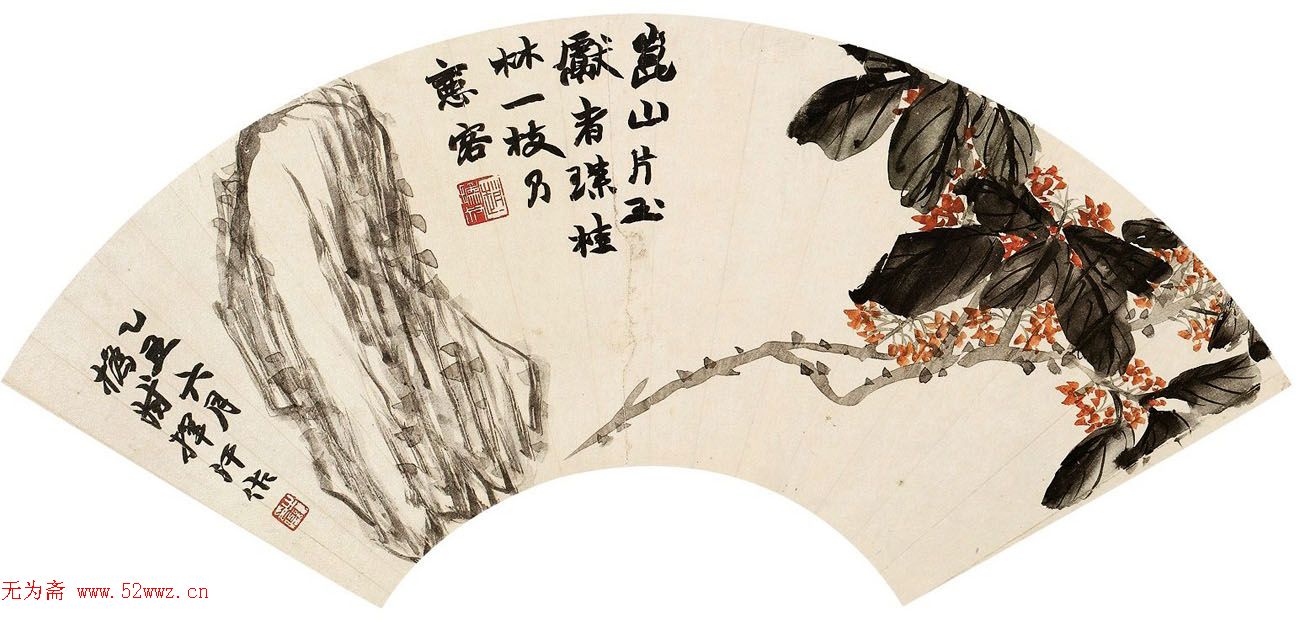 崑山片玉
獻者璞桂
林一枝乃
客
乙丑六月
撝叔揮汗作
无为斋 www.52wwz.cn